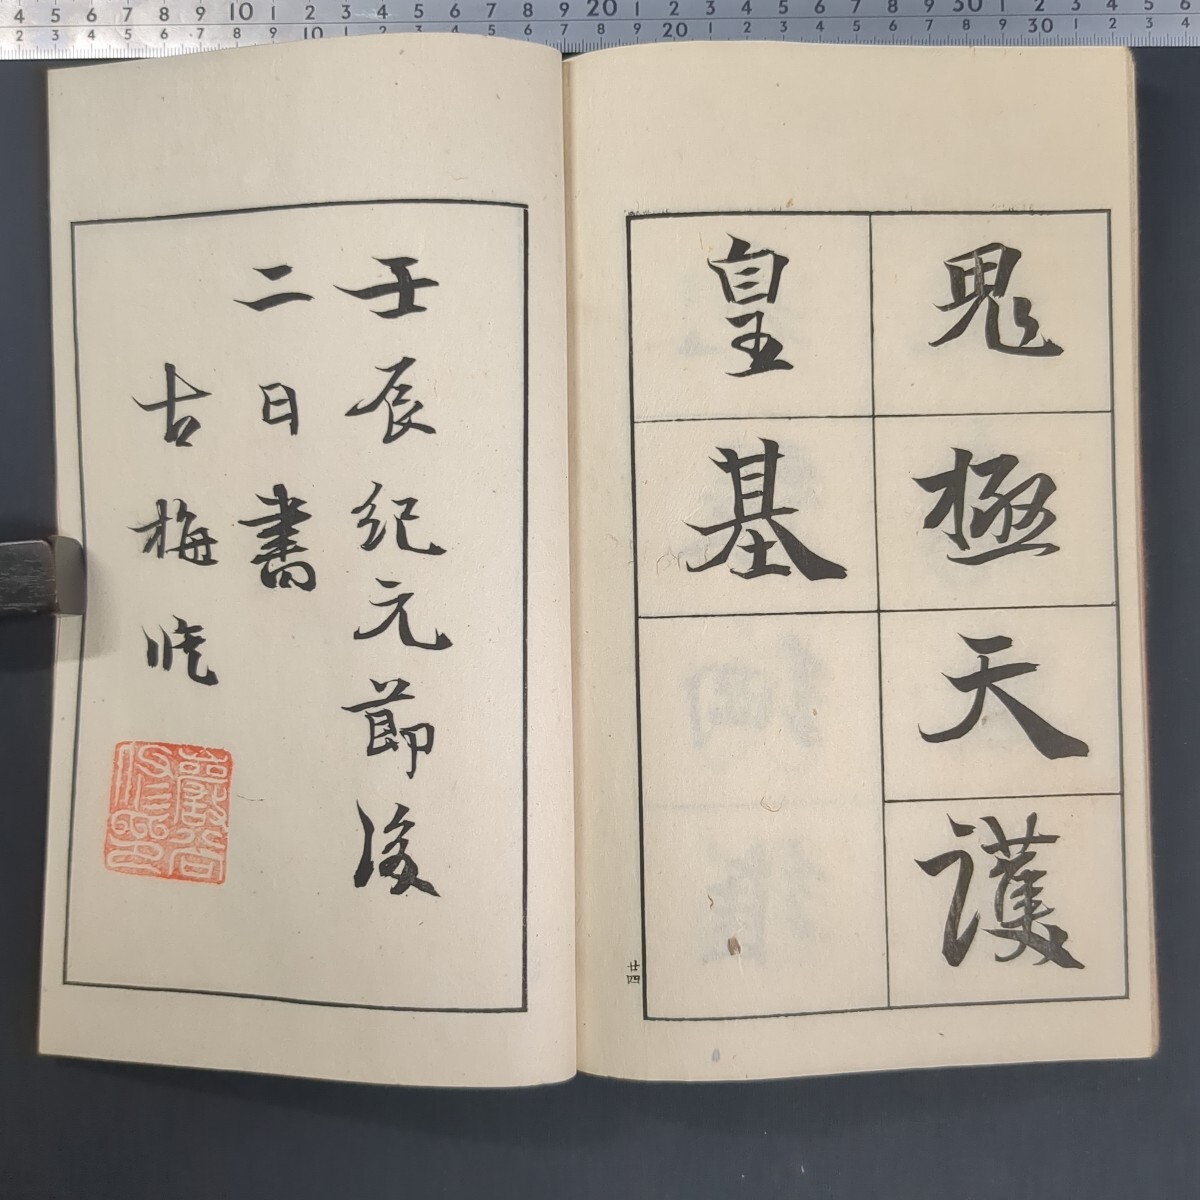 4 5 6 7 8 9 10 1 2 3 4 5 6 7 8 9 20 1 2 3 4 5 6 7 8 9 30 1 2 3 4 5 6
2 3 4 5 6 7 8 9 10 1 2 3 4 5 6 7 8 9 20 1 2 3 4 5 6 7 8 9 30 1 2 3 4
鬼極天護
皇基
廿四
壬辰紀元節後
二日書
古梅修
巖谷
修印